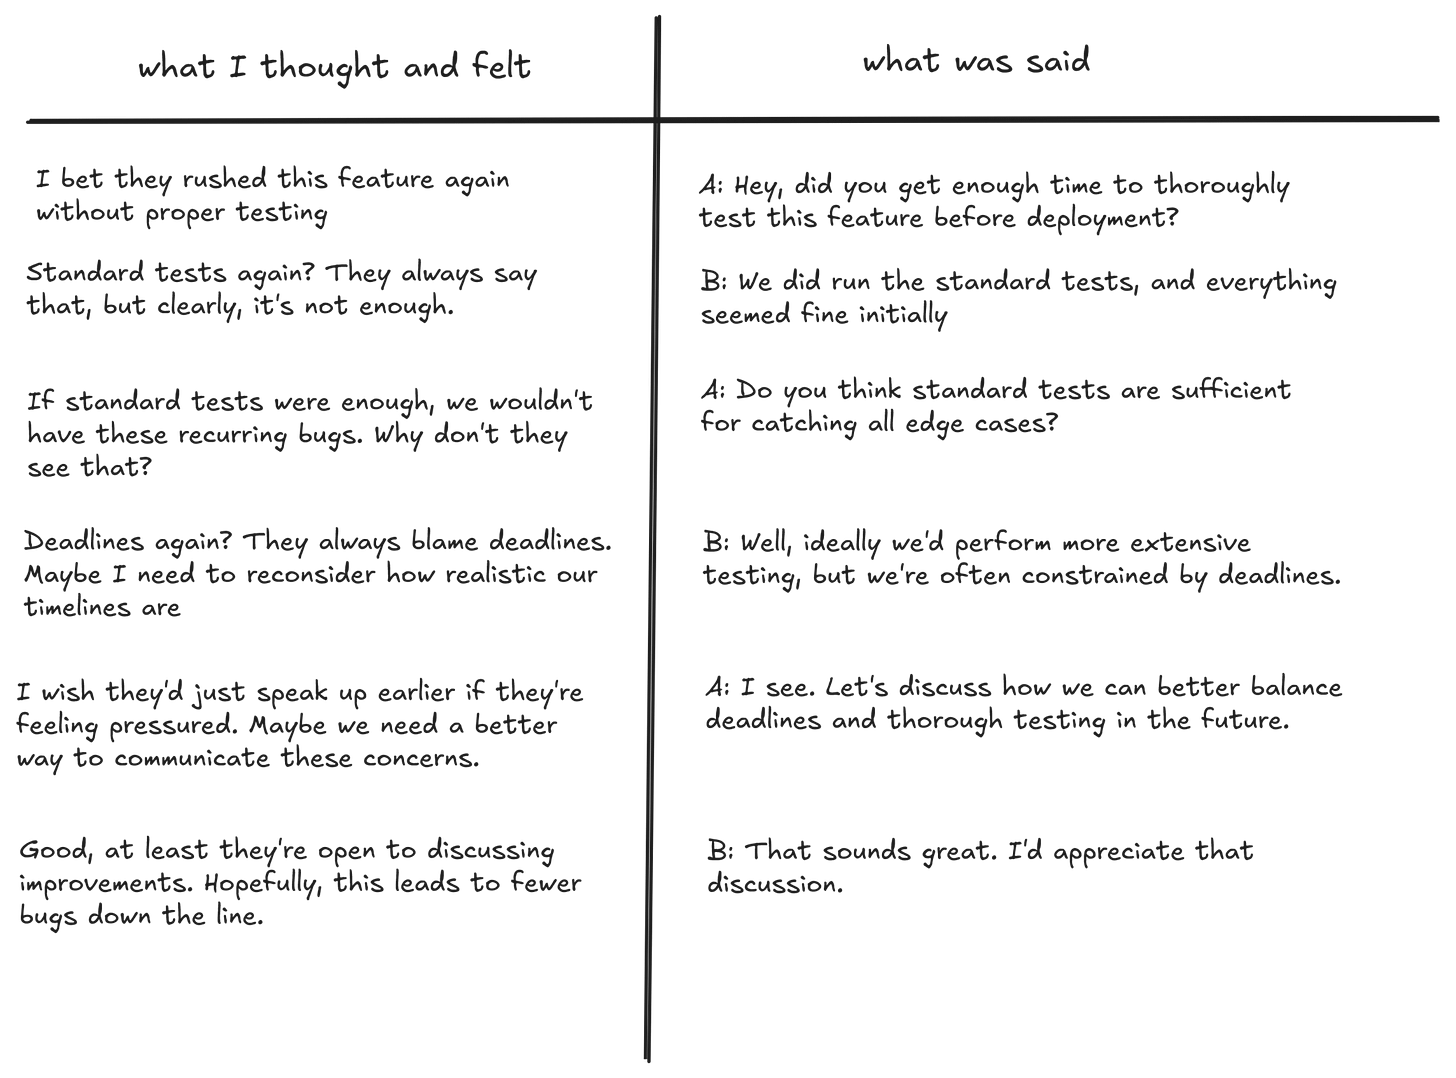 what I thought and felt
what was said
I bet they rushed this feature again
without proper testing
A: Hey, did you get enough time to thoroughly
test this feature before deployment?
Standard tests again? They always say
that, but clearly, it's not enough.
B: We did run the standard tests, and everything
seemed fine initially
If standard tests were enough, we wouldn't
have these recurring bugs. Why don't they
see that?
A: Do you think standard tests are sufficient
for catching all edge cases?
Deadlines again? They always blame deadlines.
Maybe I need to reconsider how realistic our
timelines are
B: Well, ideally we'd perform more extensive
testing, but we're often constrained by deadlines.
I wish they'd just speak up earlier if they're
feeling pressured. Maybe we need a better
way to communicate these concerns.
A: I see. Let's discuss how we can better balance
deadlines and thorough testing in the future.
Good, at least they're open to discussing
improvements. Hopefully, this leads to fewer
bugs down the line.
B: That sounds great. I'd appreciate that
discussion.